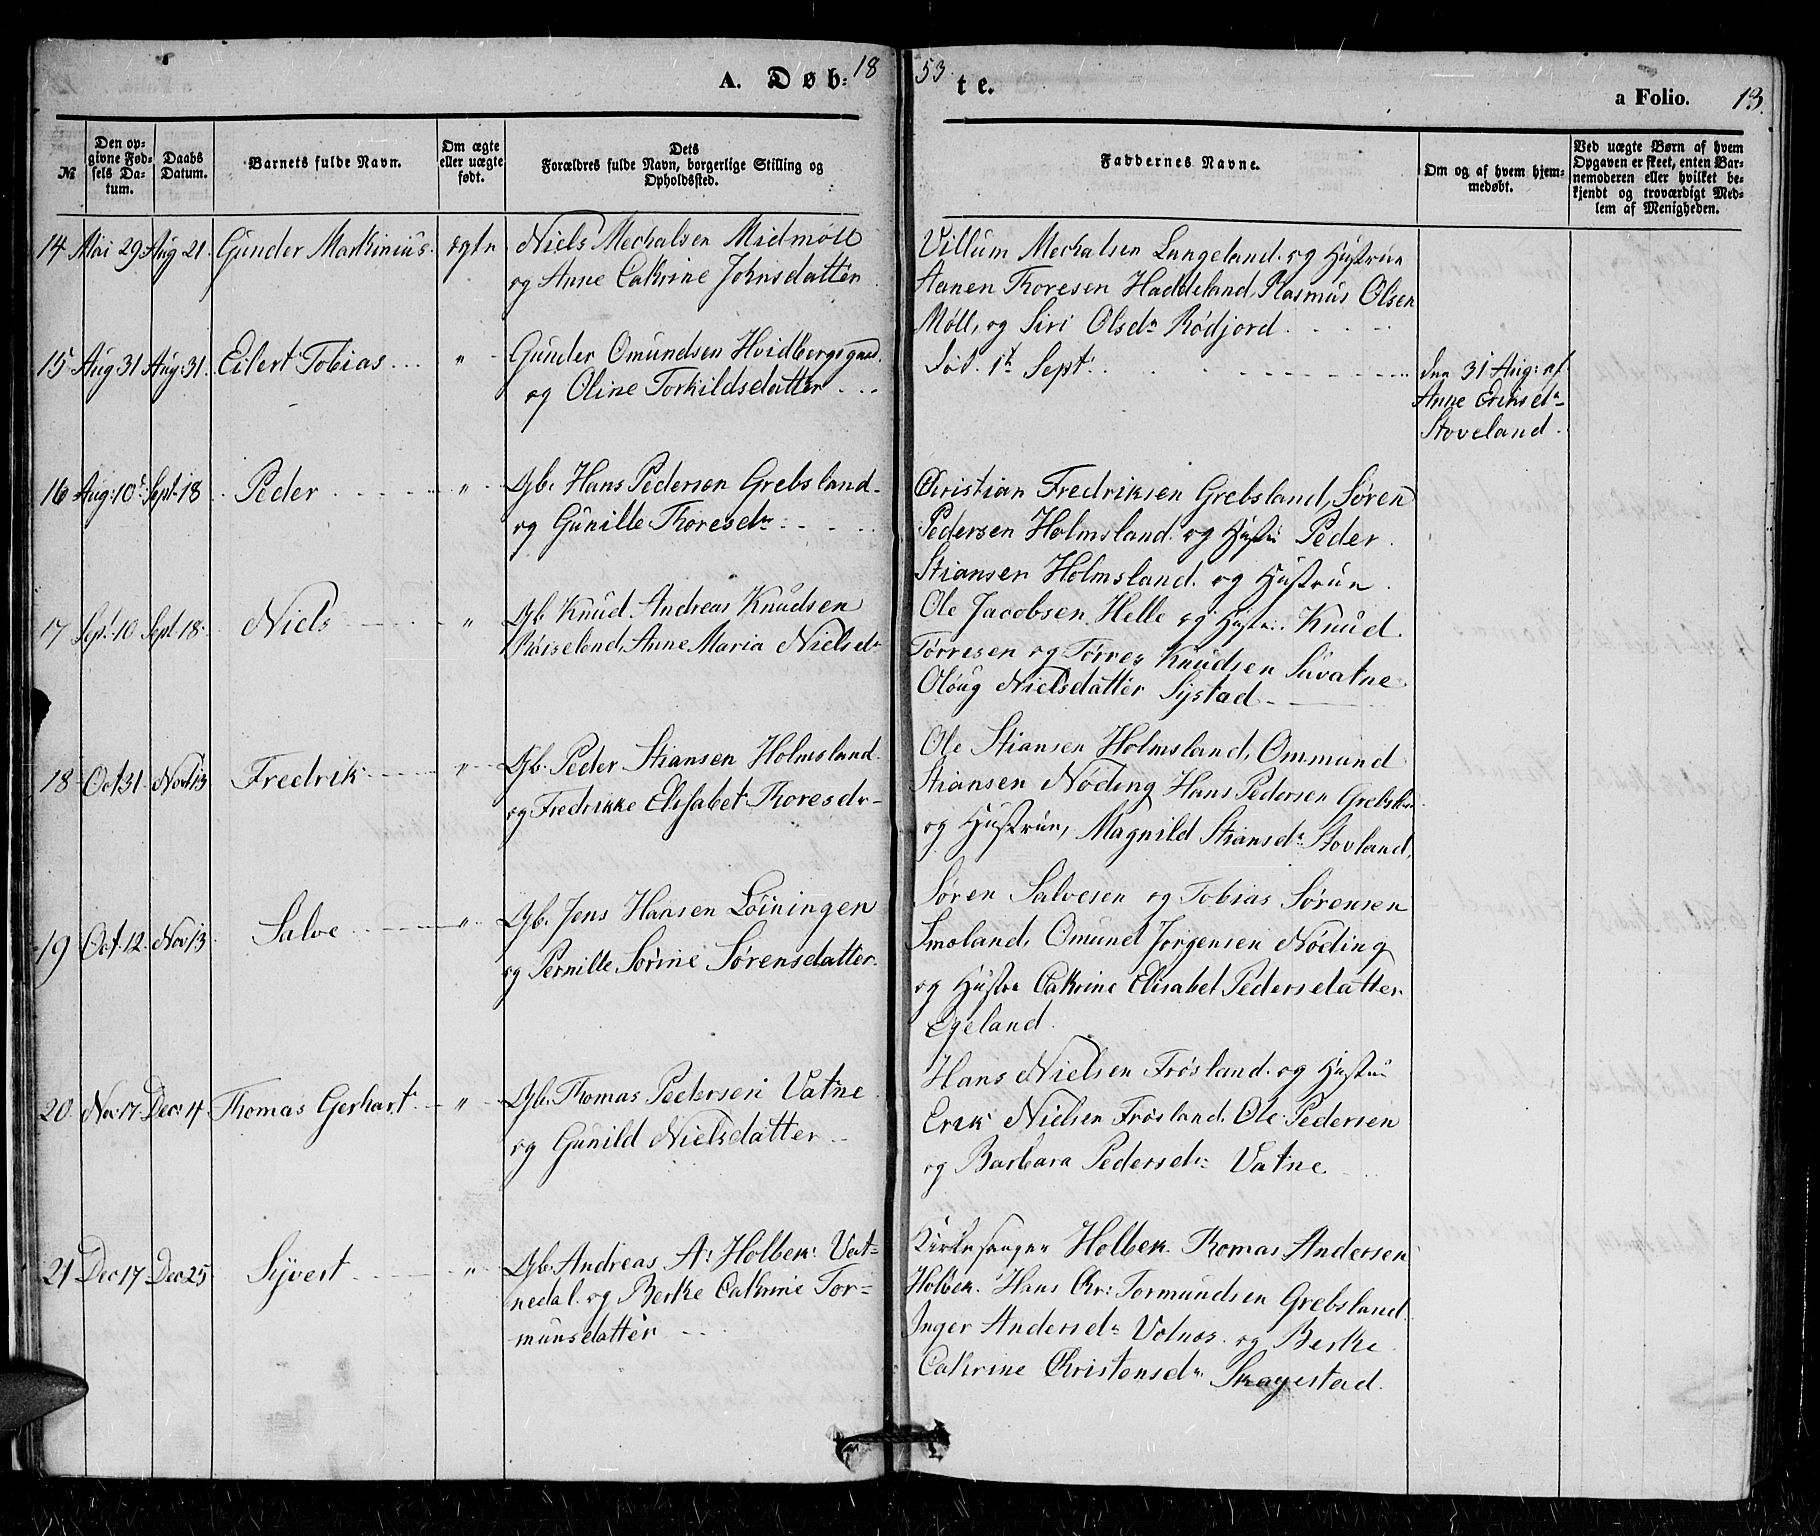 A. Døb= 18 53 te.
a Folio. 13.
№
Den op-
givne Fød-
sels Da-
tum.
Daabs
Datum.
Barnets fulde Navn.
Om ægte
eller uægte
født.
Dets
Forældres fulde Navn, borgerlige Stilling og
Opholdssted.
Faddernes Navne.
Om og af hvem hjem-
medøbt.
Ved uægte Børn af hvem
Opgaven er skeet, enten Bar-
nemoderen eller hvilket be-
kjendt og troværdigt Med-
lem af Menigheden.
14 Mai 29 Aug 21. Gunder Markinius. ægte
Niels Mechalsen Midmøll
og Anne Cathrine Johnsdatter
Villum Mechalsen Langeland. og Hustrue
Aanen Thoresen Haddeland, Rasmus Olsen
Møll, og Siri Olsdr Rødjord
15 Aug 31 Aug: 31. Eilert Tobias "
Gunder Omundsen Hvidbergs
og Oline Torkildsdatter
Død. 1t Sept:
den 31 Aug: af
Anne
Stoveland.
16 Aug: 10 Sept. 18 Peder "
Gb. Hans Pedersen Grebsland
og Gunille Thoresdr
Christian Fredriksen Grebsland, Søren
Pedersen Holmsland. og Hustru Peder
Stiansen Holmsland. og Hustrue
17 Sept. 10 Sept. 18. Niels "
Gb. Knud. Andreas Knudsen
Røiseland, Anne Maria Nielsdr
Ole Jacobsen Helle og Hustru. Knud
Tørresen og Tørres Knudsen Suvatne
Oloug Nielsdatter Systad
18 Oct 31. Nov 13 Fredrik "
Gb. Peder Stiansen Holmsland
og Fredrikke Elisabet Thoresdr
Ole Stiansen Holmsland, Ommund
Stiansen Nøding Hans Pedersen Grebsland
og Hustrue, Magnild Stiansdr Stovland,
19 Oct. 12. Nov 13 Salve "
Gb. Jens Hansen Löiningen
og Pernille Sørine Sørensdatter.
Søren Salvesen og Tobias Sørensen
Smoland, Omund Jørgensen Nøding
og Hustru Cathrine Elisabet Pedersdatter
Egeland.
20 Nov. 17 Dec: 4. Thomas Gerhart "
Gb. Thomas Pedersen Vatne
og Gunild Nielsdatter
Hans Nielsen Frøsland. og Hustru
Erik Nielsen Frøsland, Ole Pedersen
og Barbara Pedersdr Vatne
21 Dec 17 Dec 25 Syvert "
Gb. Andreas A: Holbek: Vat=
nedal. og Berthe Cathrine Tor=
munsdatter
Kirkesanger Holbek. Thomas Andersen
Holbek. Hans Chr: Tormundsen Grebsland
Inger Andersdr Volnes. og Berthe
Cathrine Christensdr Skagestad.